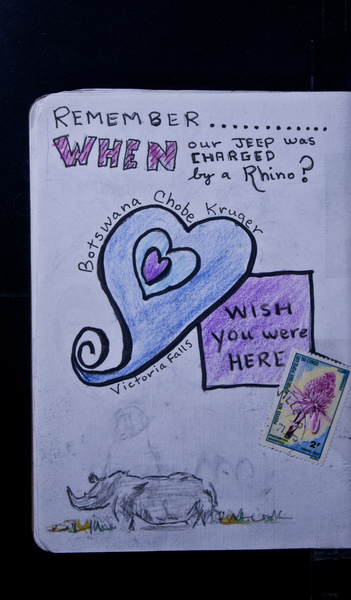 REMEMBER............
WHEN our JEEP was
CHARGED
by a Rhino?
Botswana Chobe Kruger
Victoria Falls
WISH
you were
HERE
2F